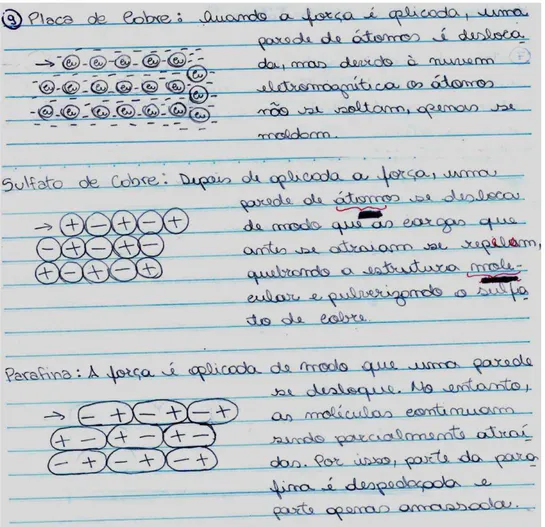 9 Placa de Cobre: Quando a força é aplicada, uma
parede de átomos é desloca
da, mas devido à nuvem
eletromagnética os átomos
não se soltam, apenas se
moldam.
→ Cu Cu Cu Cu Cu
Cu Cu Cu Cu Cu Cu Cu
Cu Cu Cu Cu Cu Cu Cu
Sulfato de Cobre: Depois de aplicada a força, uma
parede de átomos se desloca
de modo que as cargas que
antes se atraiam se repelem,
quebrando a estrutura mole-
cular e pulverizando o sulfa
to de cobre.
→ + - + - +
- + - + -
+ - + - +
Parafina: A força é aplicada de modo que uma parede
se desloque. No entanto,
as moléculas continuam
sendo parcialmente atraí-
das. Por isso, parte da para
fina é despedaçada e
parte apenas amassada.
→ - + - + - +
+ - + - + -
- + - + - +